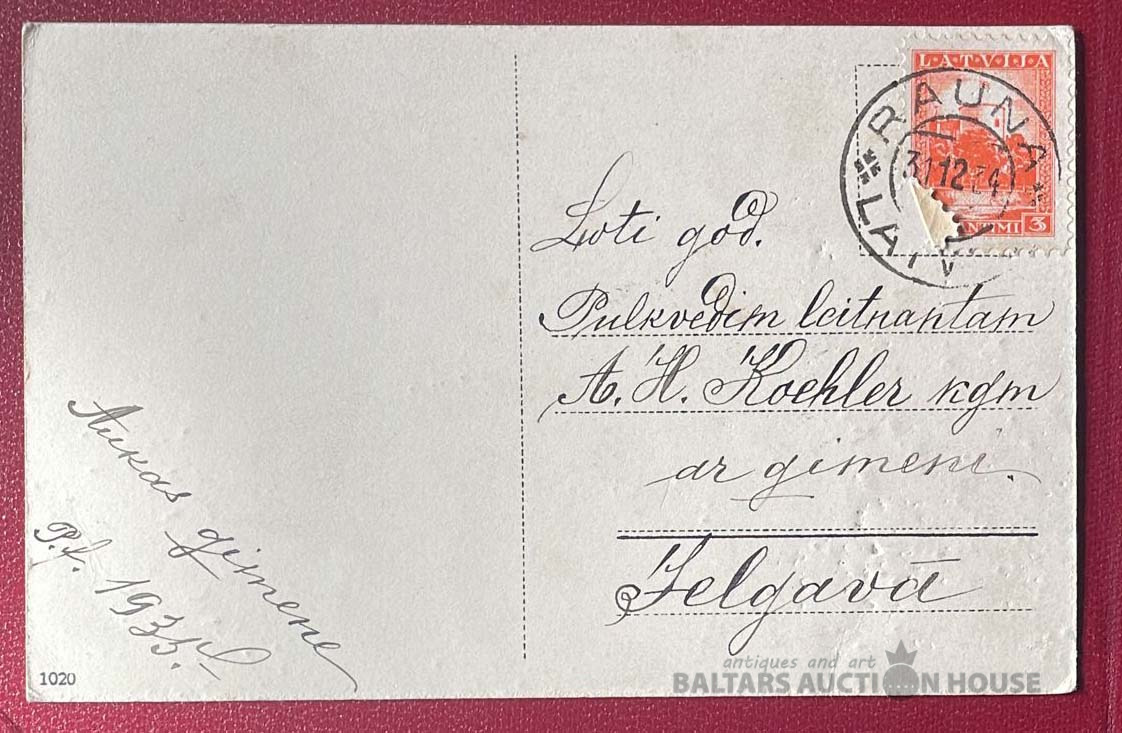 LATVIJA
RAUNA
31 12 34
LATV
3
Ļoti god.
Pulkvedim leitnantam
A. H. Koehler kgm
ar ģimeni.
Jelgavā
Aukas ģimene
P.f. 1935.
1020
antiques and art
BALTARS AUCTION HOUSE